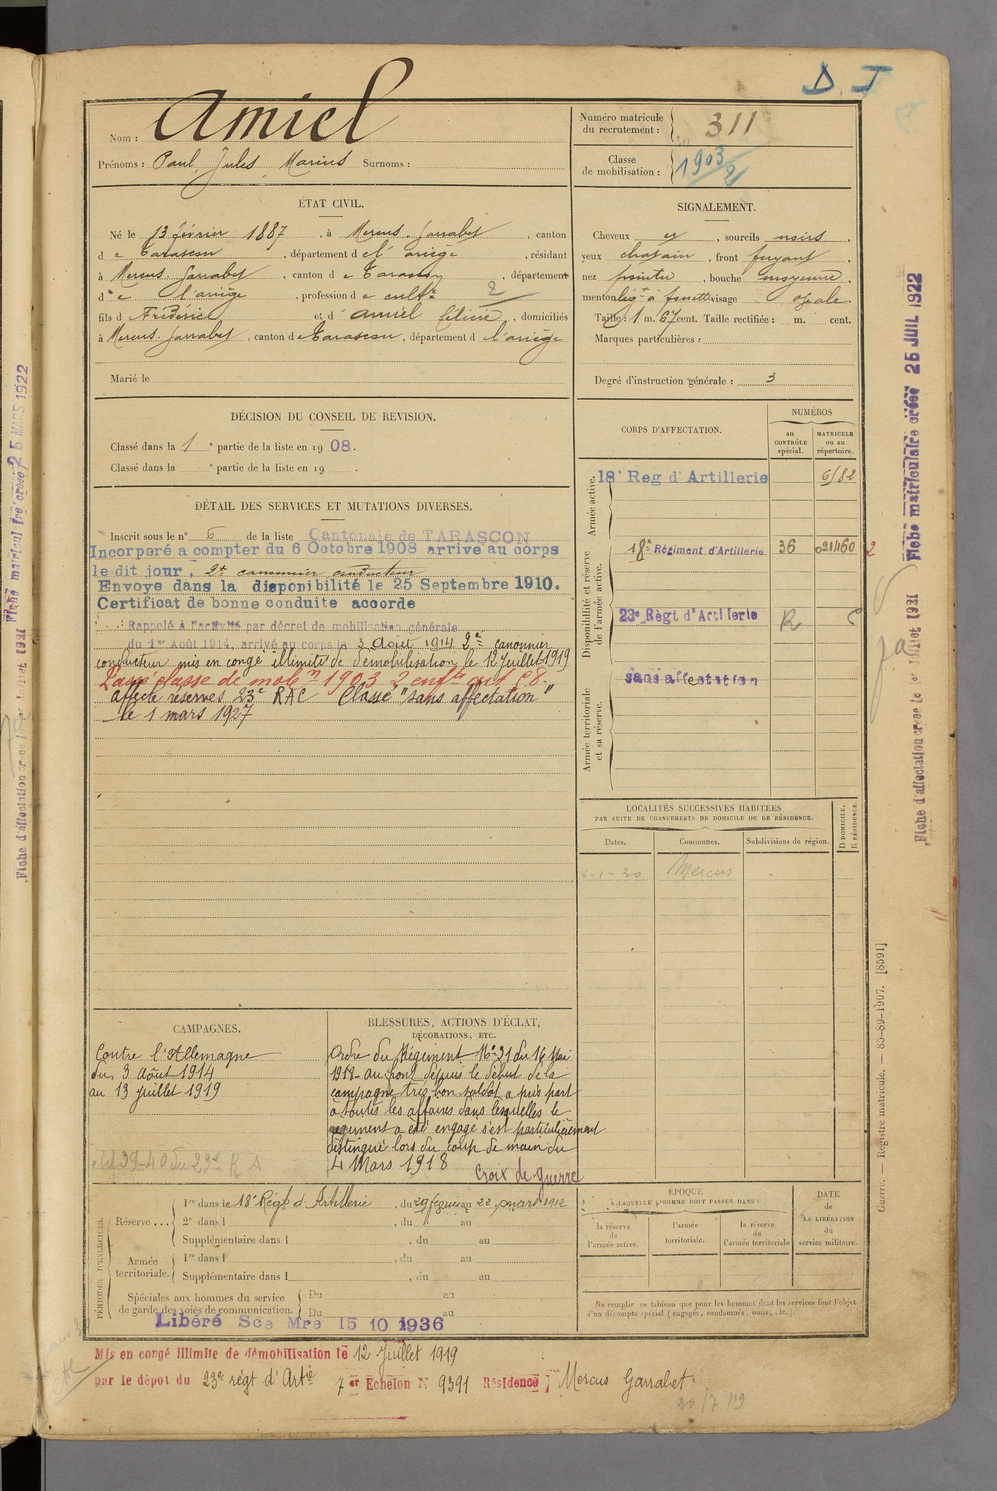 D. I
Nom : Amiel
Prénoms : Paul, Jules, Marius Surnoms :
Numéro matricule
du recrutement : 311
Classe
de mobilisation : 1903/2
ÉTAT CIVIL.
Né le 13 février 1887, à Mercus-Garrabet, canton
de Tarascon, département de l'Ariège, résidant
à Mercus-Garrabet, canton de Tarascon, département
de l'Ariège, profession de cultr 2
fils de Frédéric et d'Amiel Céline, domiciliés
à Mercus-Garrabet, canton de Tarascon, département de l'Ariège
Marié le
SIGNALEMENT.
Cheveux et, sourcils noirs,
yeux chatain, front fuyant,
nez pointu, bouche moyenne,
menton légt à fossette visage ovale.
Taille : 1 m. 67 cent. Taille rectifiée : m. cent.
Marques particulières :
Degré d'instruction générale : 3
DÉCISION DU CONSEIL DE REVISION.
Classé dans la 1e partie de la liste en 1908.
Classé dans la e partie de la liste en 19 .
DÉTAIL DES SERVICES ET MUTATIONS DIVERSES.
Inscrit sous le n° 6 de la liste Cantonale de TARASCON
Incorporé a compter du 6 Octobre 1908 arrive au corps
le dit jour, 2e canonnier conducteur
Envoye dans la disponibilité le 25 Septembre 1910.
Certificat de bonne conduite accorde
Rappelé à l'activité par décret de mobilisation générale
du 1er Août 1914, arrivé au corps le 3 Août 1914 2e canonnier
conducteur mis en congé illimité de démobilisation le 12 Juillet 1919
Passe classe de mobon 1903 2 enfts art 58.
affecté réserves 23e RAC Classé "sans affectation"
le 1 mars 1927
CORPS D'AFFECTATION.
NUMÉROS
au
CONTRÔLE
spécial.
MATRICULE
ou au
répertoire.
Armée active.
18e Reg d'Artillerie 6182
Disponibilité et réserve
de l'armée active.
18e Régiment d'Artillerie 36 021460 2
23e Règt d'Artillerie R C
Armée territoriale
et sa réserve.
sans affectation
LOCALITÉS SUCCESSIVES HABITÉES
PAR SUITE DE CHANGEMENTS DE DOMICILE OU DE RÉSIDENCE.
Dates. Communes. Subdivisions de région. D DOMICILE. R RÉSIDENCE.
6-1-30 Mercus
CAMPAGNES.
Contre l'Allemagne
du 3 Août 1914
au 13 Juillet 1919
BLESSURES, ACTIONS D'ÉCLAT,
DÉCORATIONS, ETC.
Ordre du Régiment N° 31 du 16 Mai
1918 - au front depuis le début de la
campagne très bon soldat a pris part
à toutes les affaires dans lesquelles le
régiment a été engagé s'est particulièrement
distingué lors du coup de main du
4 Mars 1918 Croix de guerre
PÉRIODES D'EXERCICES.
Réserve... 1re dans le 18e Régt d'Artillerie, du 29 février au 22 mars 1912
2e dans l , du au
Supplémentaire dans l , du au
Armée
territoriale.
1re dans l , du au
Supplémentaire dans l , du au
Spéciales aux hommes du service
de garde des voies de communication.
Du au
Du au
Libéré Sce Mre 15 10 1936
ÉPOQUE
À LAQUELLE L'HOMME DOIT PASSER DANS :
la réserve
de
l'armée active.
l'armée
territoriale.
la réserve
de
l'armée territoriale
DATE
de
LA LIBÉRATION
du
service militaire.
Ne remplir ce tableau que pour les hommes dont les services font l'objet
d'un décompte spécial (engagés, condamnés, omis, etc.).
Mis en congé illimité de démobilisation le 12 Juillet 1919
par le dépot du 23e régt d'Artie 7er Echelon N° 9391 Résidence Mercus Garrabet
20/7/19
Guerre. — Registre matricule. — 85-89-1907. [8591]
Fiche matriculaire créée 25 JUIL 1922
Fiche d'affectation créée le 1er Juillet 1921
Fiche matriculaire créée 25 MARS 1922
Fiche d'affectation créée le 1er Juillet 1921